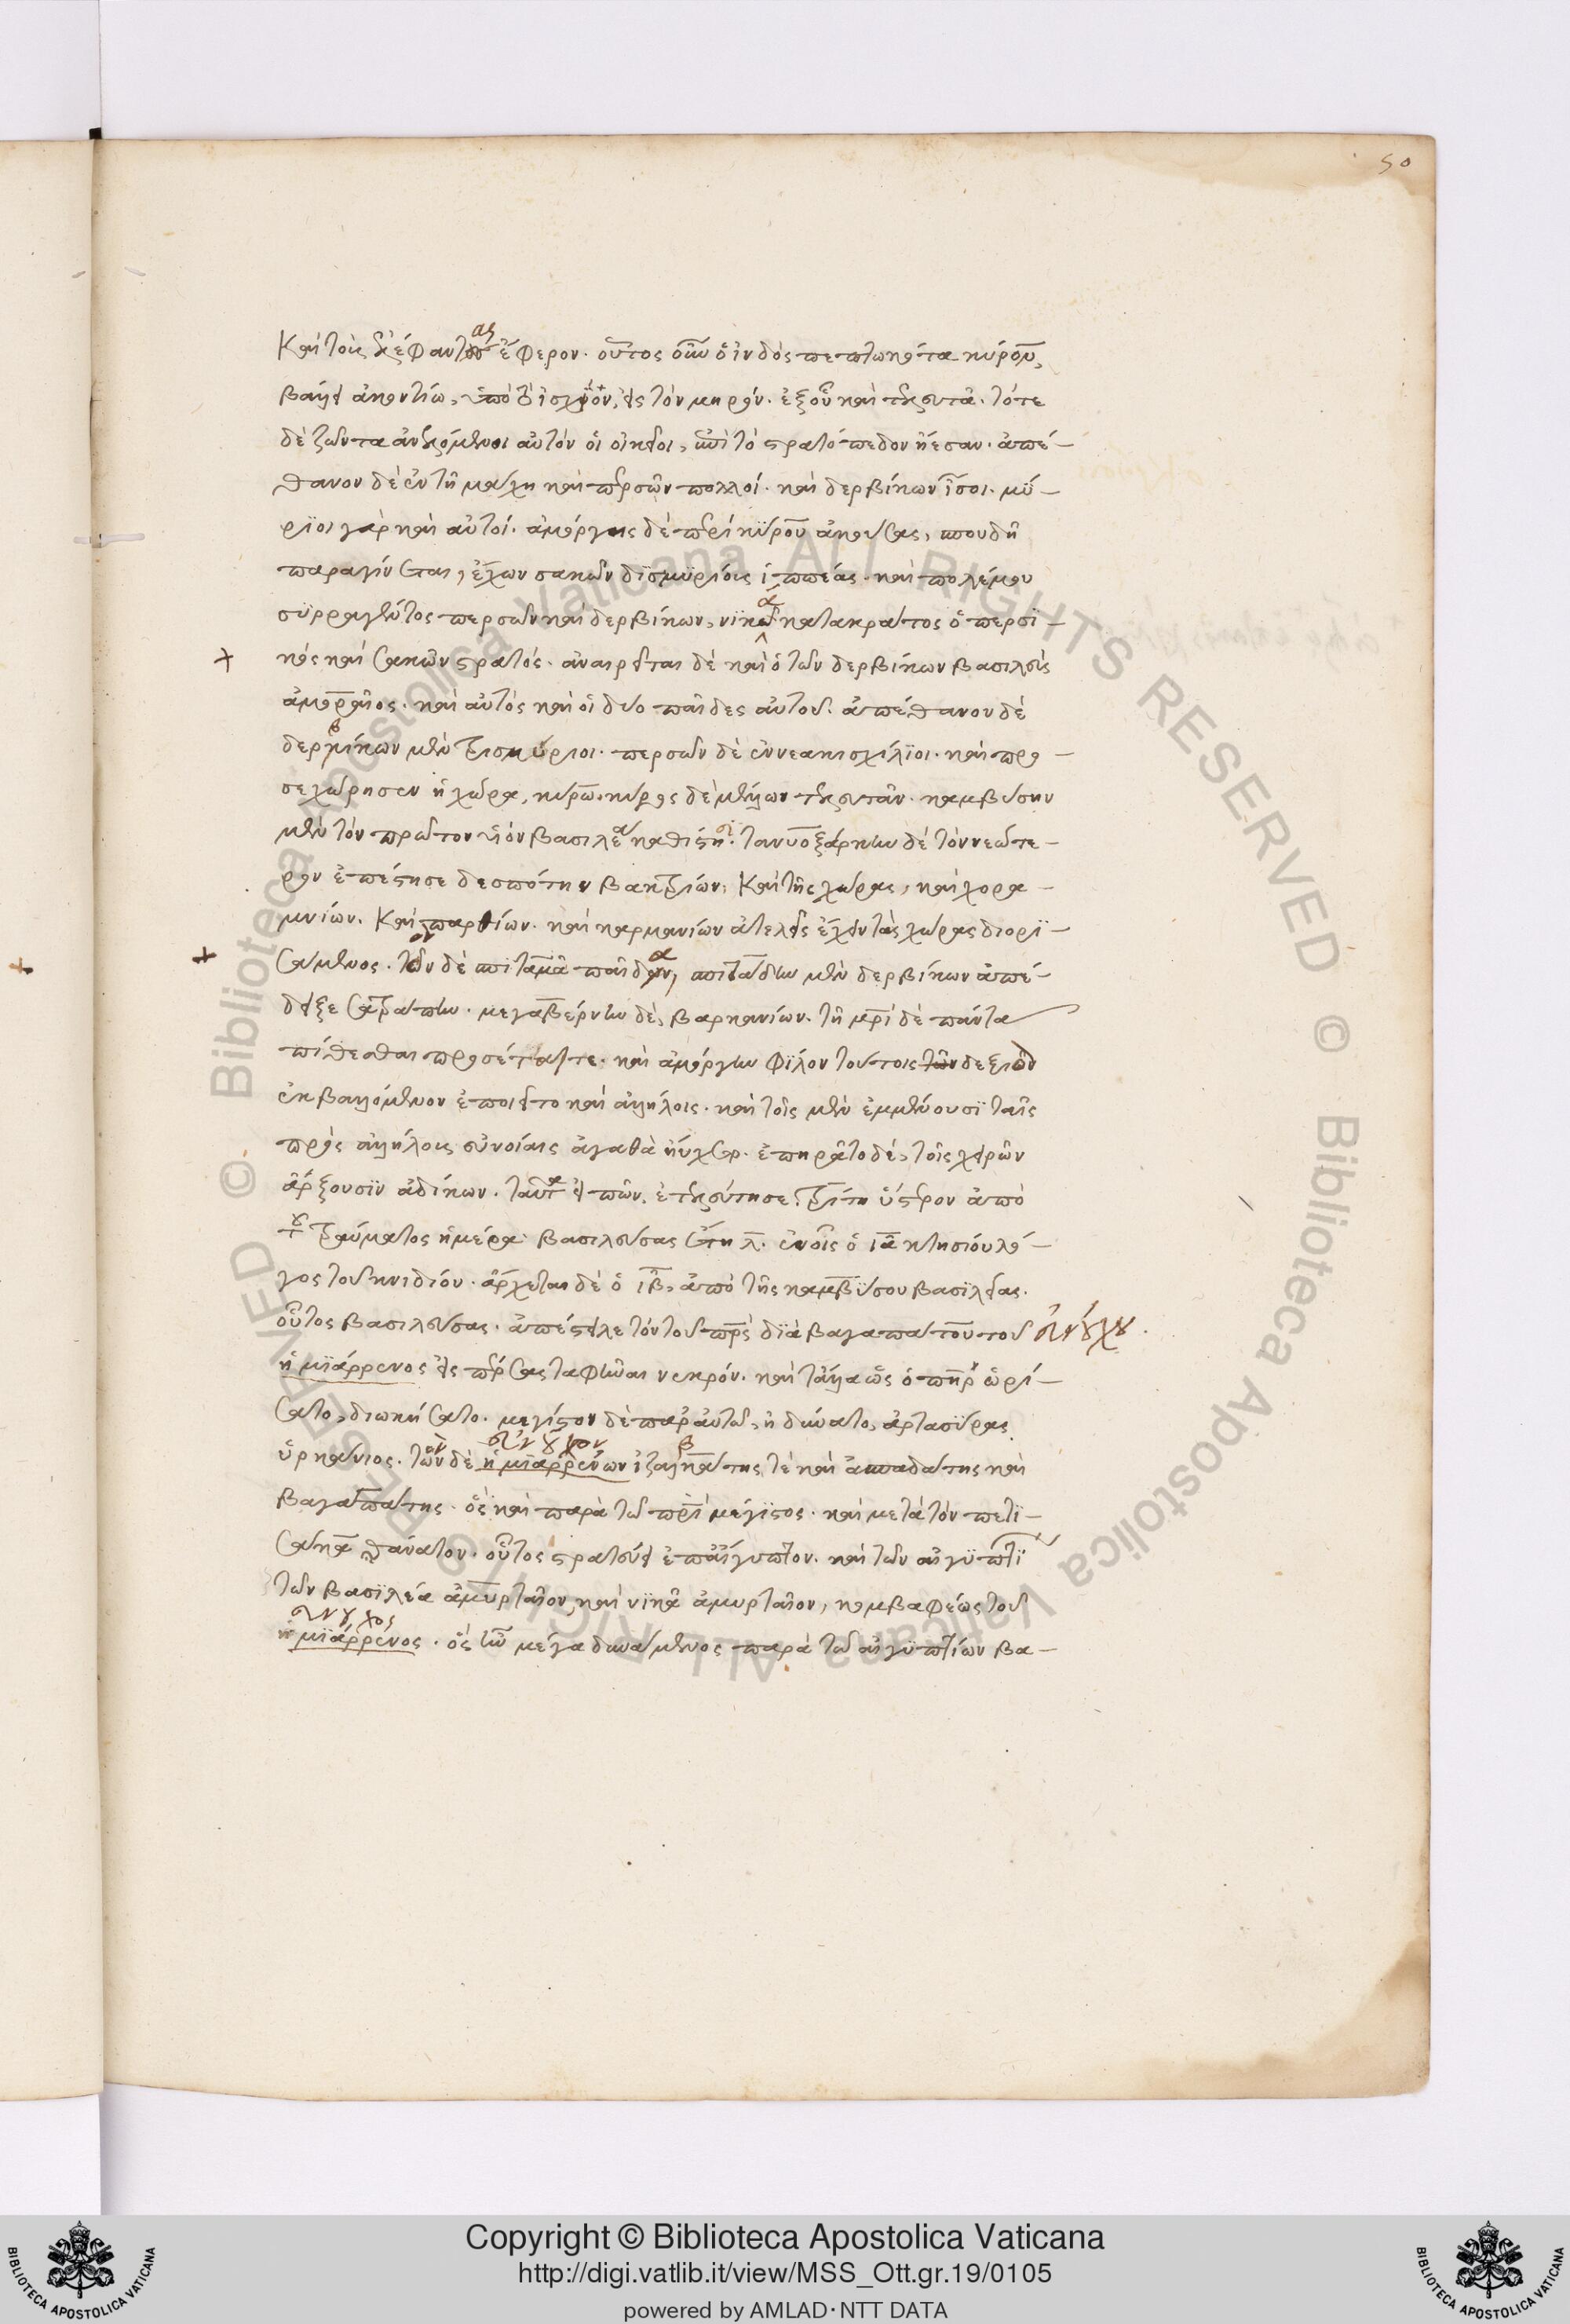 50
Καὶ τοὺς ἐλέφαντας ἔφερον· οὗτος οὖν ὁ ἰνδὸς πεπτωκότα κύρου,
βάλλει ἀκοντίω, ὑπὸ τὸ ἰσχίον, εἰς τὸν μηρόν. ἐξ οὗ καὶ τελευτᾶ. τότε
δὲ ζῶντα ἀνελόμενοι αὐτὸν οἱ οἰκεῖοι, ἐπὶ τὸ στρατόπεδον ἤεσαν. ἀπέ-
θανον δὲ ἐν τῆ μάχη καὶ περσῶν πολλοί. καὶ δερβίκων ἴσοι. μύ-
ριοι γὰρ καὶ αὐτοί. ἀμόργης δὲ περὶ κύρου ἀκούσας, σπουδῆ
παραγίνεται, ἔχων σακῶν δισμυρίους ἱππέας. καὶ πολέμου
συρραγέντος περσῶν καὶ δερβίκων, νικᾶ κατακράτος ὁ περσι-
κὸς καὶ σακῶν στρατός. ἀναιρεῖται δὲ καὶ ὁ τῶν δερβίκων βασιλεὺς
ἀμοραῖος. καὶ αὐτὸς καὶ οἱ δύο παῖδες αὐτοῦ. ἀπέθανον δὲ
δερβίκων μὲν τρισμύριοι. περσῶν δὲ ἐννεακισχίλιοι. καὶ προ-
σεχώρησεν ἡ χώρα, κύρω. κῦρος δὲ μέλλων τελευτᾶν. καμβύσην
μὲν τὸν πρῶτον υἱὸν βασιλέα καθίστη. τανυοξάρκην δὲ τὸν νεώτε-
ρον ἐπέστησε δεσπότην βακτρίων. Καὶ τῆς χώρας, καὶ χορα-
μνίων. Καὶ παρθίων. καὶ καρμανίων ἀτελεῖς ἔχειν τὰς χώρας διορι-
σάμενος. τῶν δὲ σπιτάμα παίδων, σπιτάδην μὲν δερβίκων ἀπέ-
δειξε σατράπην. μεγαβέρνην δὲ, βαρκανίων. τῆ μητρὶ δὲ πάντα
πίθεσθαι προσέταττε. καὶ ἀμόργην φίλον τούτοις τῶν δεξιῶν
ἐκβαλλόμενον ἐποιεῖτο καὶ ἀλλήλοις. καὶ τοῖς μὲν ἐμμένουσι ταῖς
πρὸς ἀλλήλους εὐνοίαις ἀγαθὰ ηὔχετο. ἐπηρᾶτο δὲ, τοῖς χειρῶν
ἄρξουσιν ἀδίκων. ταῦτα εἰπὼν, ἐτελεύτησε, τρίτη ὕστερον ἀπὸ
τοῦ τραύματος ἡμέρα. βασιλεύσας ἔτη λ. ἐν οἷς ὁ ια κτησίου λό-
γος τοῦ κνιδίου. ἄρχεται δὲ ὁ ιβ, ἀπὸ τῆς καμβύσου βασιλείας.
οὗτος βασιλεύσας. ἀπέστειλε τὸν τοῦ πατρὸς διὰ βαγαπάτου τοῦ εὐνούχου.
ἡμιάρρενος εἰς πέρσας ταφῆναι νεκρόν. καὶ τἄλλα ὡς ὁ πατὴρ ὡρί-
σατο, διωκήσατο. μέγιστον δὲ παρ᾽ αὐτῶ, ἠδύνατο, ἀρτασύρας
ὑρκάνιος. τῶν δὲ εὐνούχων ἡμιαρρένων ἰζαβάτης τὲ καὶ ἀσπαδάτης καὶ
βαγαπάτης. ὃς καὶ παρὰ τῶ πατρὶ μέγιστος. καὶ μετὰ τὸν πετι-
σάκα θάνατον. οὗτος στρατεύει ἐπ᾽ αἴγυπτον. καὶ τῶν αἰγυπτί
των βασιλέα ἀμυρταῖον, καὶ νικᾶ ἀμυρταῖον, κομβαφέως τοῦ
εὐνούχος ἡμιάρρενος. ὃς ἦν μέγα δυνάμενος παρὰ τῶ αἰγυπτίων βα-
© Biblioteca Apostolica Vaticana ALL RIGHTS RESERVED © Biblioteca Apostolica Vaticana ALL RIGHTS RESERVED
BIBLIOTECA APOSTOLICA VATICANA
Copyright © Biblioteca Apostolica Vaticana
http://digi.vatlib.it/view/MSS_Ott.gr.19/0105
powered by AMLAD·NTT DATA
BIBLIOTECA APOSTOLICA VATICANA